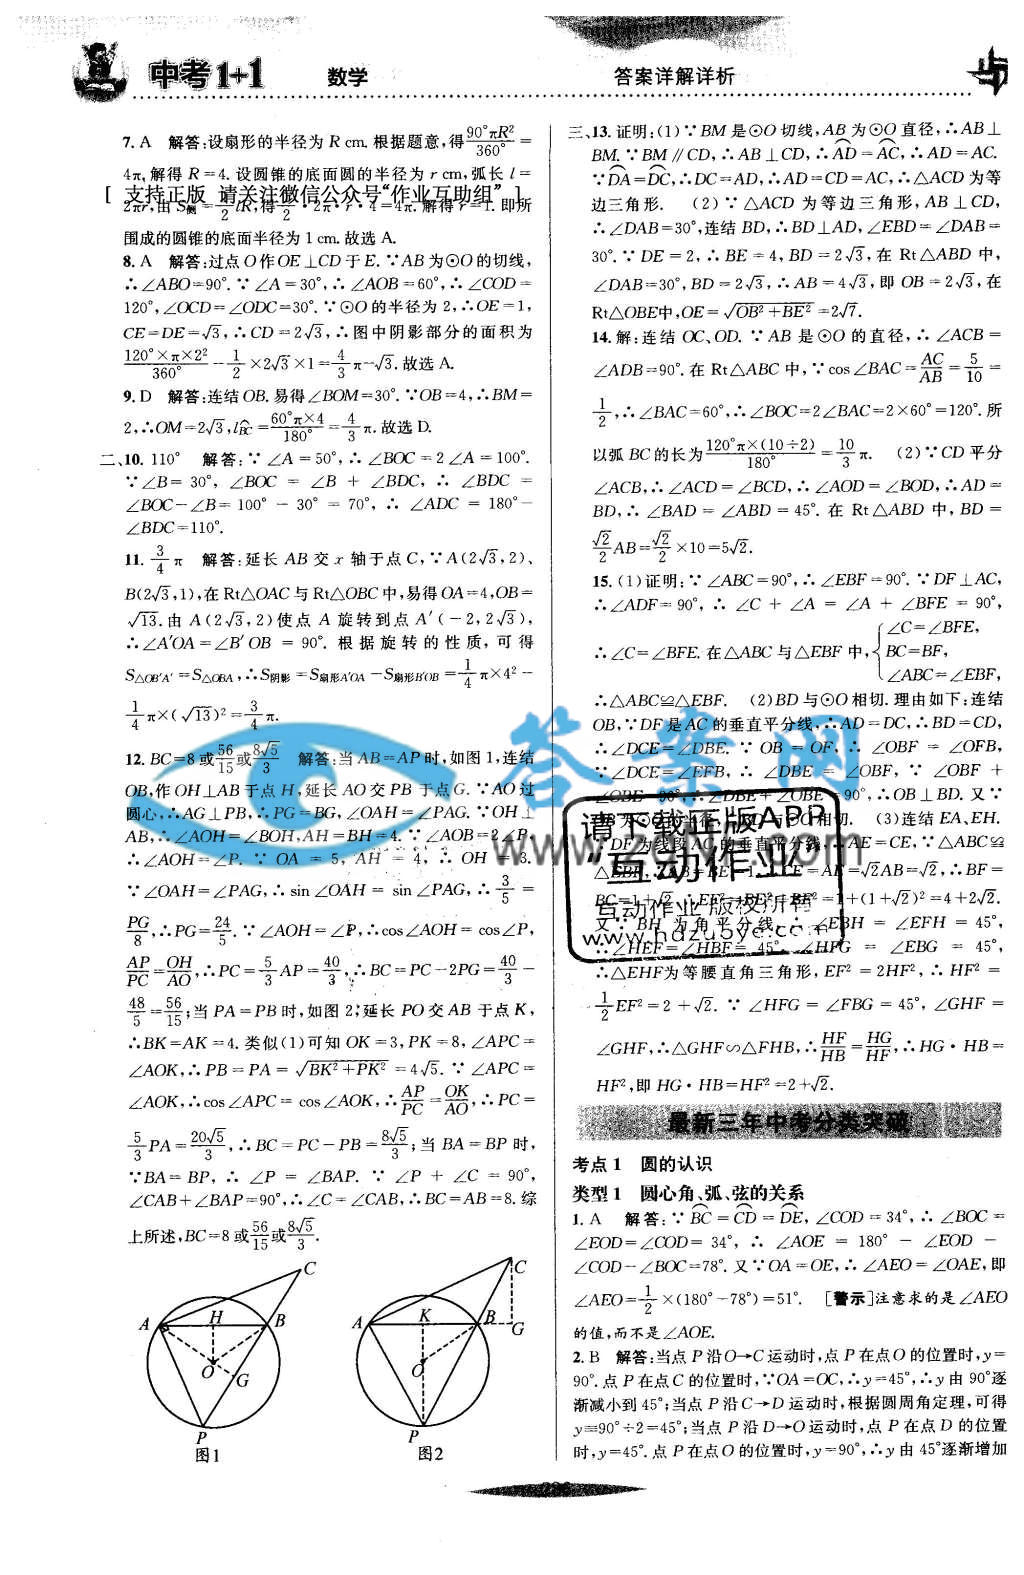 中考1+1 数学 答案详解详析
7. A 解答:设扇形的半径为 R cm. 根据题意,得90°πR²/360°=
4π,解得 R=4. 设圆锥的底面圆的半径为 r cm,弧长 l=
[ 支持正版 请关注微信公众号“作业互助组” ]
2πr,由 S侧=1/2lR,得1/2·2π·r·4=4π. 解得 r=1. 即所
围成的圆锥的底面半径为 1 cm. 故选 A.
8. A 解答:过点 O 作 OE⊥CD 于 E. ∵AB 为⊙O 的切线,
∴∠ABO=90°. ∵∠A=30°,∴∠AOB=60°,∴∠COD=
120°,∠OCD=∠ODC=30°. ∵⊙O 的半径为 2,∴OE=1,
CE=DE=√3,∴CD=2√3,∴图中阴影部分的面积为
120°×π×2²/360°-1/2×2√3×1=4/3π-√3. 故选 A.
9. D 解答:连结 OB. 易得∠BOM=30°. ∵OB=4,∴BM=
2,∴OM=2√3,l⌒BC=60°π×4/180°=4/3π. 故选 D.
二、10. 110° 解答:∵∠A=50°,∴∠BOC=2∠A=100°.
∵∠B=30°,∠BOC=∠B+∠BDC,∴∠BDC=
∠BOC-∠B=100°-30°=70°,∴∠ADC=180°-
∠BDC=110°.
11. 3/4π 解答:延长 AB 交 x 轴于点 C,∵A(2√3,2)、
B(2√3,1),在 Rt△OAC 与 Rt△OBC 中,易得 OA=4,OB=
√13. 由 A(2√3,2)使点 A 旋转到点 A′(-2,2√3),
∴∠A′OA=∠B′OB=90°. 根据旋转的性质,可得
S△OB′A′=S△OBA,∴S阴影=S扇形A′OA-S扇形B′OB=1/4π×4²-
1/4π×(√13)²=3/4π.
12. BC=8或56/15或8√5/3 解答:当 AB=AP 时,如图 1,连结
OB,作 OH⊥AB 于点 H,延长 AO 交 PB 于点 G. ∵AO 过
圆心,∴AG⊥PB,∴PG=BG,∠OAH=∠PAG. ∵OH⊥
AB,∴∠AOH=∠BOH,AH=BH=4. ∵∠AOB=2∠P,
∴∠AOH=∠P. ∵OA=5,AH=4,∴OH=3.
∵∠OAH=∠PAG,∴sin∠OAH=sin∠PAG,∴3/5=
PG/8,∴PG=24/5. ∵∠AOH=∠P,∴cos∠AOH=cos∠P,
AP/PC=OH/AO,∴PC=5/3AP=40/3,∴BC=PC-2PG=40/3-
48/5=56/15;当 PA=PB 时,如图 2,延长 PO 交 AB 于点 K,
∴BK=AK=4. 类似(1)可知 OK=3,PK=8,∠APC=
∠AOK,∴PB=PA=√BK²+PK²=4√5. ∵∠APC=
∠AOK,∴cos∠APC=cos∠AOK,∴AP/PC=OK/AO,∴PC=
5/3PA=20√5/3,∴BC=PC-PB=8√5/3;当 BA=BP 时,
∵BA=BP,∴∠P=∠BAP. ∵∠P+∠C=90°,
∠CAB+∠BAP=90°,∴∠C=∠CAB,∴BC=AB=8. 综
上所述,BC=8或56/15或8√5/3.
A H B C O G P 图1
A K B C O G P 图2
三、13. 证明:(1)∵BM 是⊙O 切线,AB 为⊙O 直径,∴AB⊥
BM. ∵BM∥CD,∴AB⊥CD,∴⌒AD=⌒AC,∴AD=AC.
∵⌒DA=⌒DC,∴DC=AD,∴AD=CD=AC,∴△ACD 为等
边三角形. (2)∵△ACD 为等边三角形,AB⊥CD,
∴∠DAB=30°,连结 BD,∴BD⊥AD,∠EBD=∠DAB=
30°. ∵DE=2,∴BE=4,BD=2√3,在 Rt△ABD 中,
∠DAB=30°,BD=2√3,∴AB=4√3,即 OB=2√3,在
Rt△OBE 中,OE=√OB²+BE²=2√7.
14. 解:连结 OC、OD. ∵AB 是⊙O 的直径,∴∠ACB=
∠ADB=90°. 在 Rt△ABC 中,∵cos∠BAC=AC/AB=5/10=
1/2,∴∠BAC=60°,∴∠BOC=2∠BAC=2×60°=120°. 所
以弧 BC 的长为120°π×(10÷2)/180°=10/3π. (2)∵CD 平分
∠ACB,∴∠ACD=∠BCD,∴∠AOD=∠BOD,∴AD=
BD,∴∠BAD=∠ABD=45°. 在 Rt△ABD 中,BD=
√2/2AB=√2/2×10=5√2.
15. (1)证明:∵∠ABC=90°,∴∠EBF=90°. ∵DF⊥AC,
∴∠ADF=90°,∴∠C+∠A=∠A+∠BFE=90°,
∴∠C=∠BFE. 在△ABC 与△EBF 中,{∠C=∠BFE, BC=BF, ∠ABC=∠EBF,
∴△ABC≌△EBF. (2)BD 与⊙O 相切. 理由如下:连结
OB,∵DF 是 AC 的垂直平分线,∴AD=DC,∴BD=CD,
∴∠DCE=∠DBE. ∵OB=OF,∴∠OBF=∠OFB,
∵∠DCE=∠EFB,∴∠DBE=∠OBF,∵∠OBF+
∠OBE=90°,∴∠DBE+∠OBE=90°,∴OB⊥BD. 又∵
相切. (3)连结 EA、EH.
DF 为线段 AC 的垂直平分线,∴AE=CE,∵△ABC≌
△EBF,∴AB=BE=1,∴CE=AE=√2AB=√2,∴BF=
BC=1+√2,∴EF²=BE²+BF²=1+(1+√2)²=4+2√2.
又∵BH 为角平分线,∴∠EBH=∠EFH=45°,
∴∠HEF=∠HBF=45°,∠HFG=∠EBG=45°,
∴△EHF 为等腰直角三角形,EF²=2HF²,∴HF²=
1/2EF²=2+√2. ∵∠HFG=∠FBG=45°,∠GHF=
∠GHF,∴△GHF∽△FHB,∴HF/HB=HG/HF,∴HG·HB=
HF²,即 HG·HB=HF²=2+√2.
请下载正版APP
“互动作业”
互动作业 版权所有
www.hdzuoye.com
答案网
最新三年中考分类突破
考点1 圆的认识
类型1 圆心角、弧、弦的关系
1. A 解答:∵⌒BC=⌒CD=⌒DE,∠COD=34°,∴∠BOC=
∠EOD=∠COD=34°,∴∠AOE=180°-∠EOD-
∠COD-∠BOC=78°. 又∵OA=OE,∴∠AEO=∠OAE,即
∠AEO=1/2×(180°-78°)=51°. [警示]注意求的是∠AEO
的值,而不是∠AOE.
2. B 解答:当点 P 沿 O→C 运动时,点 P 在点 O 的位置时,y=
90°. 点 P 在点 C 的位置时,∵OA=OC,∴y=45°,∴y 由 90°逐
渐减小到 45°;当点 P 沿 C→D 运动时,根据圆周角定理,可得
y=90°÷2=45°;当点 P 沿 D→O 运动时,点 P 在点 D 的位置
时,y=45°. 点 P 在点 O 的位置时,y=90°,∴y 由 45°逐渐增加